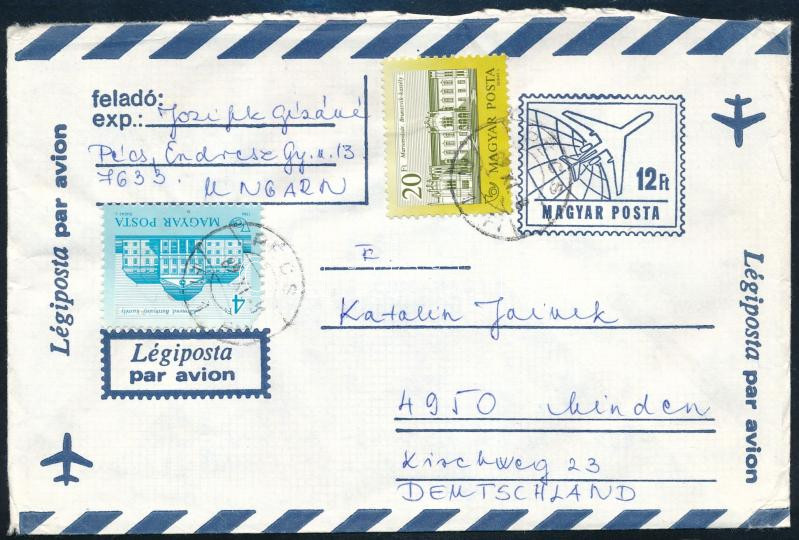 feladó:
exp.: Jozifek Gézáné
Pécs, Endresz Gy. u. 13
7633
UNGARN
Légiposta par avion
20 Ft Martonvásár, Brunszvik-kastély
MAGYAR POSTA
12Ft
MAGYAR POSTA
MAGYAR POSTA
4
PÉCS
Légiposta
par avion
F.
Katalin Jainek
4950 Minden
Kirchweg 23
DEUTSCHLAND
Légiposta par avion